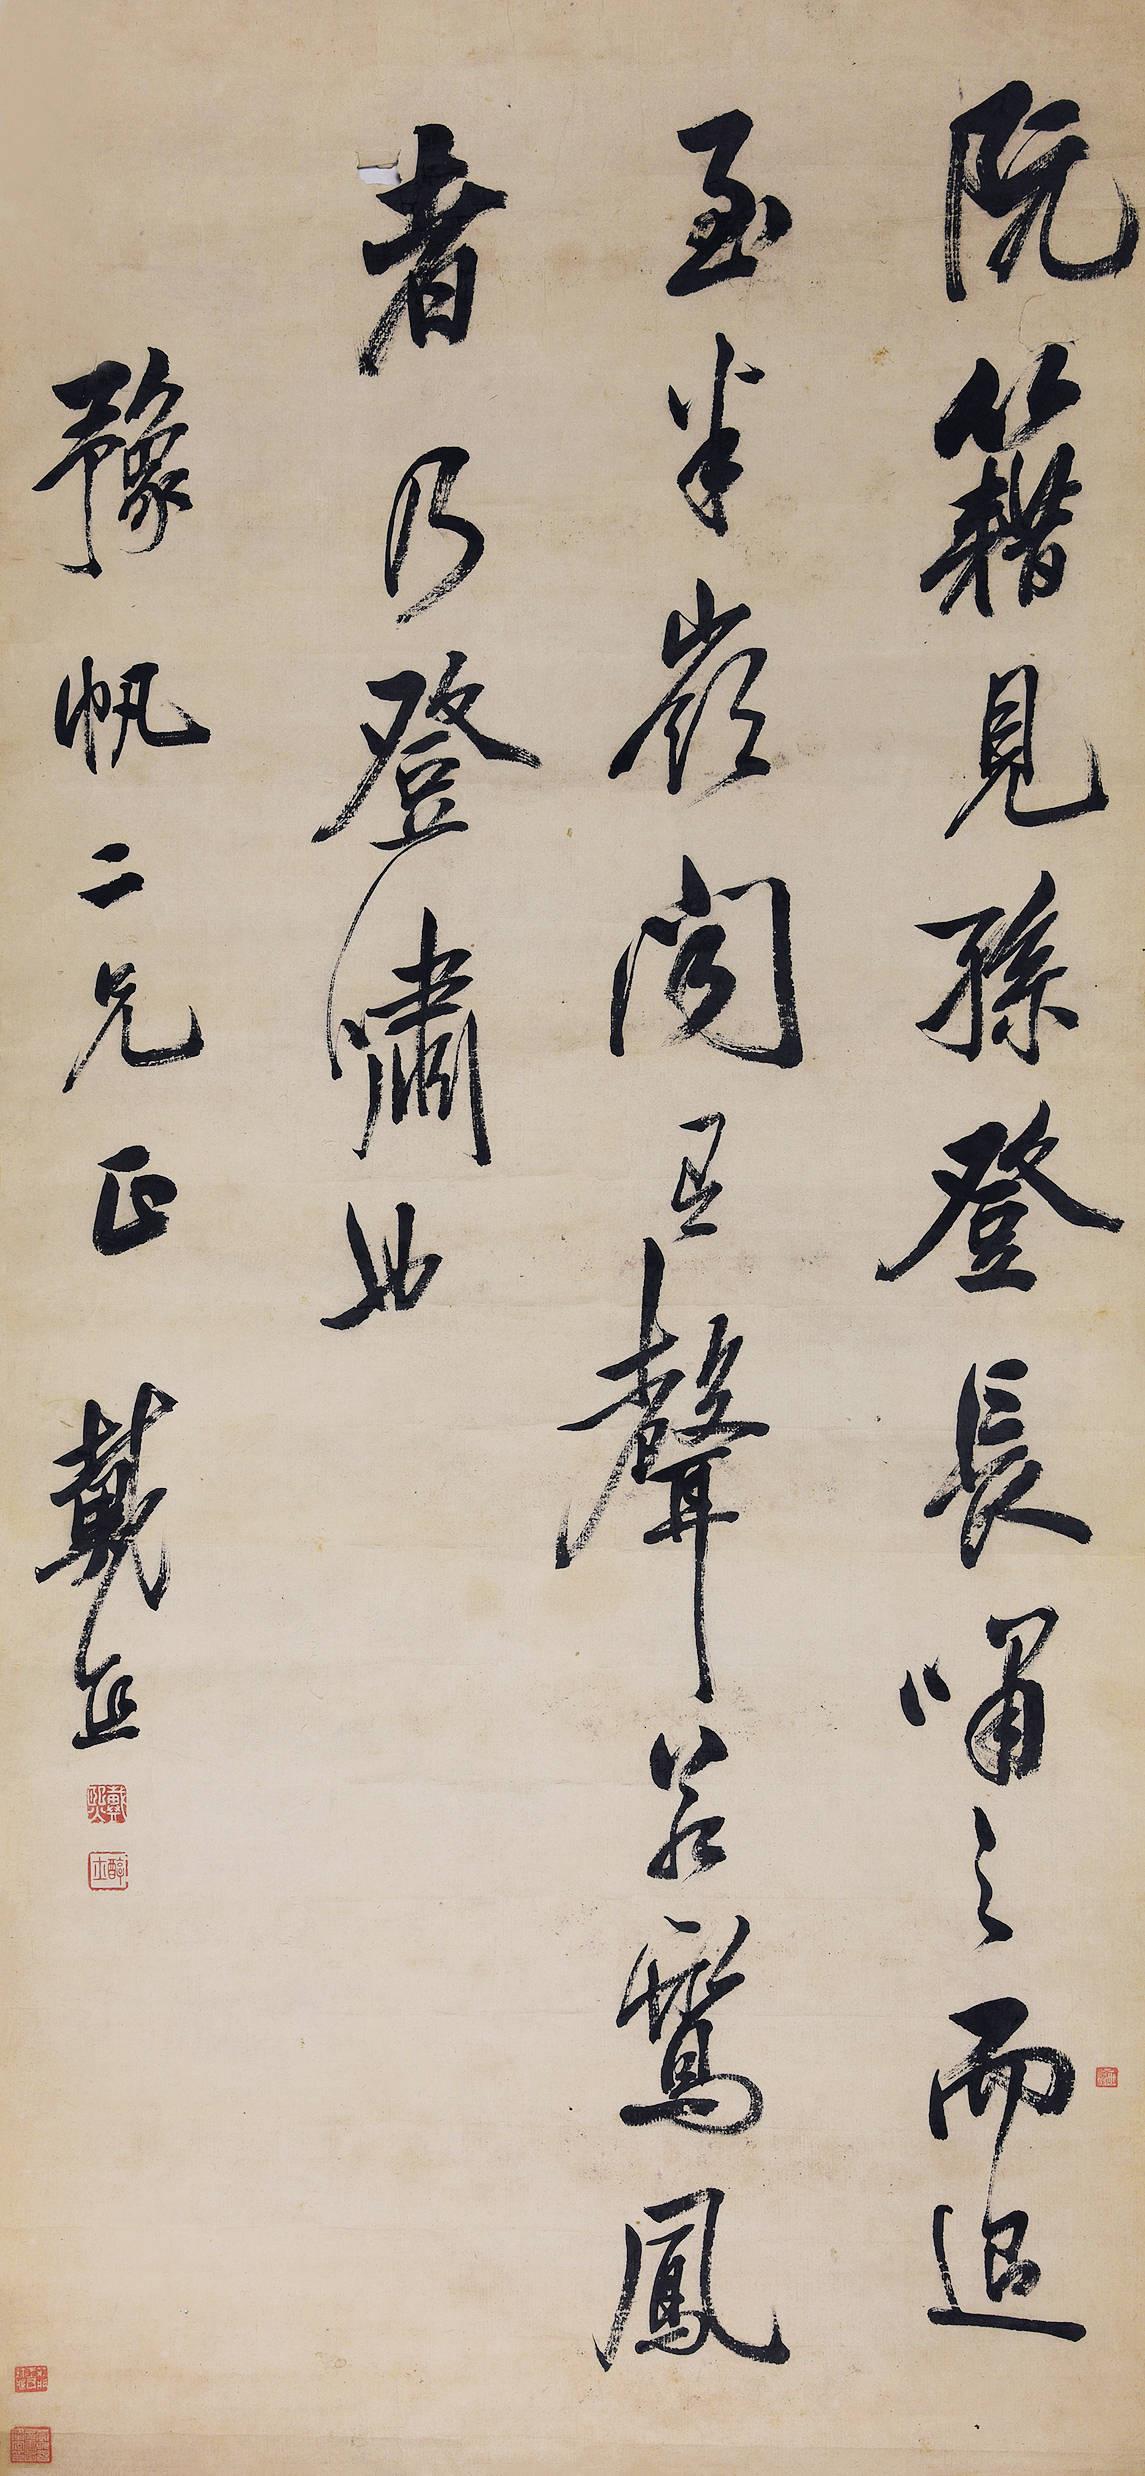 阮籍見孫登長嘯之而退
至半嶺聞有聲若鸞鳳
者乃登嘯也
豫帆二兄正 戴熙
戴熙
醇士